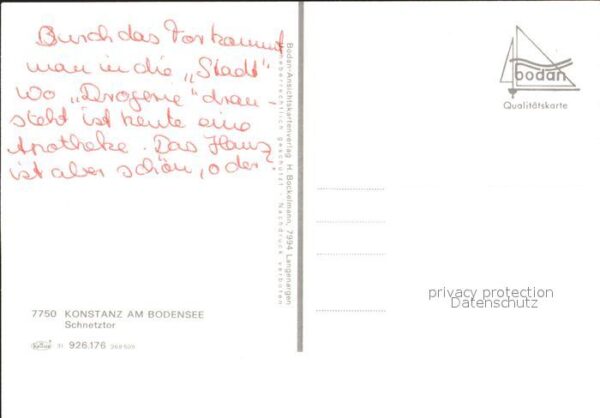 Durch das Tor kommt
man in die „Stadt"
wo „Drogerie" drau-
steht ist heute eine
Apotheke. Das Haus
ist aber schön, oder
7750 KONSTANZ AM BODENSEE
Schnetztor
Krüger 926.176
Bodan-Ansichtskartenverlag H. Bockelmann, 7994 Langenargen
Urheberrechtlich geschützt - Nachdruck verboten
bodan
Qualitätskarte
privacy protection
Datenschutz